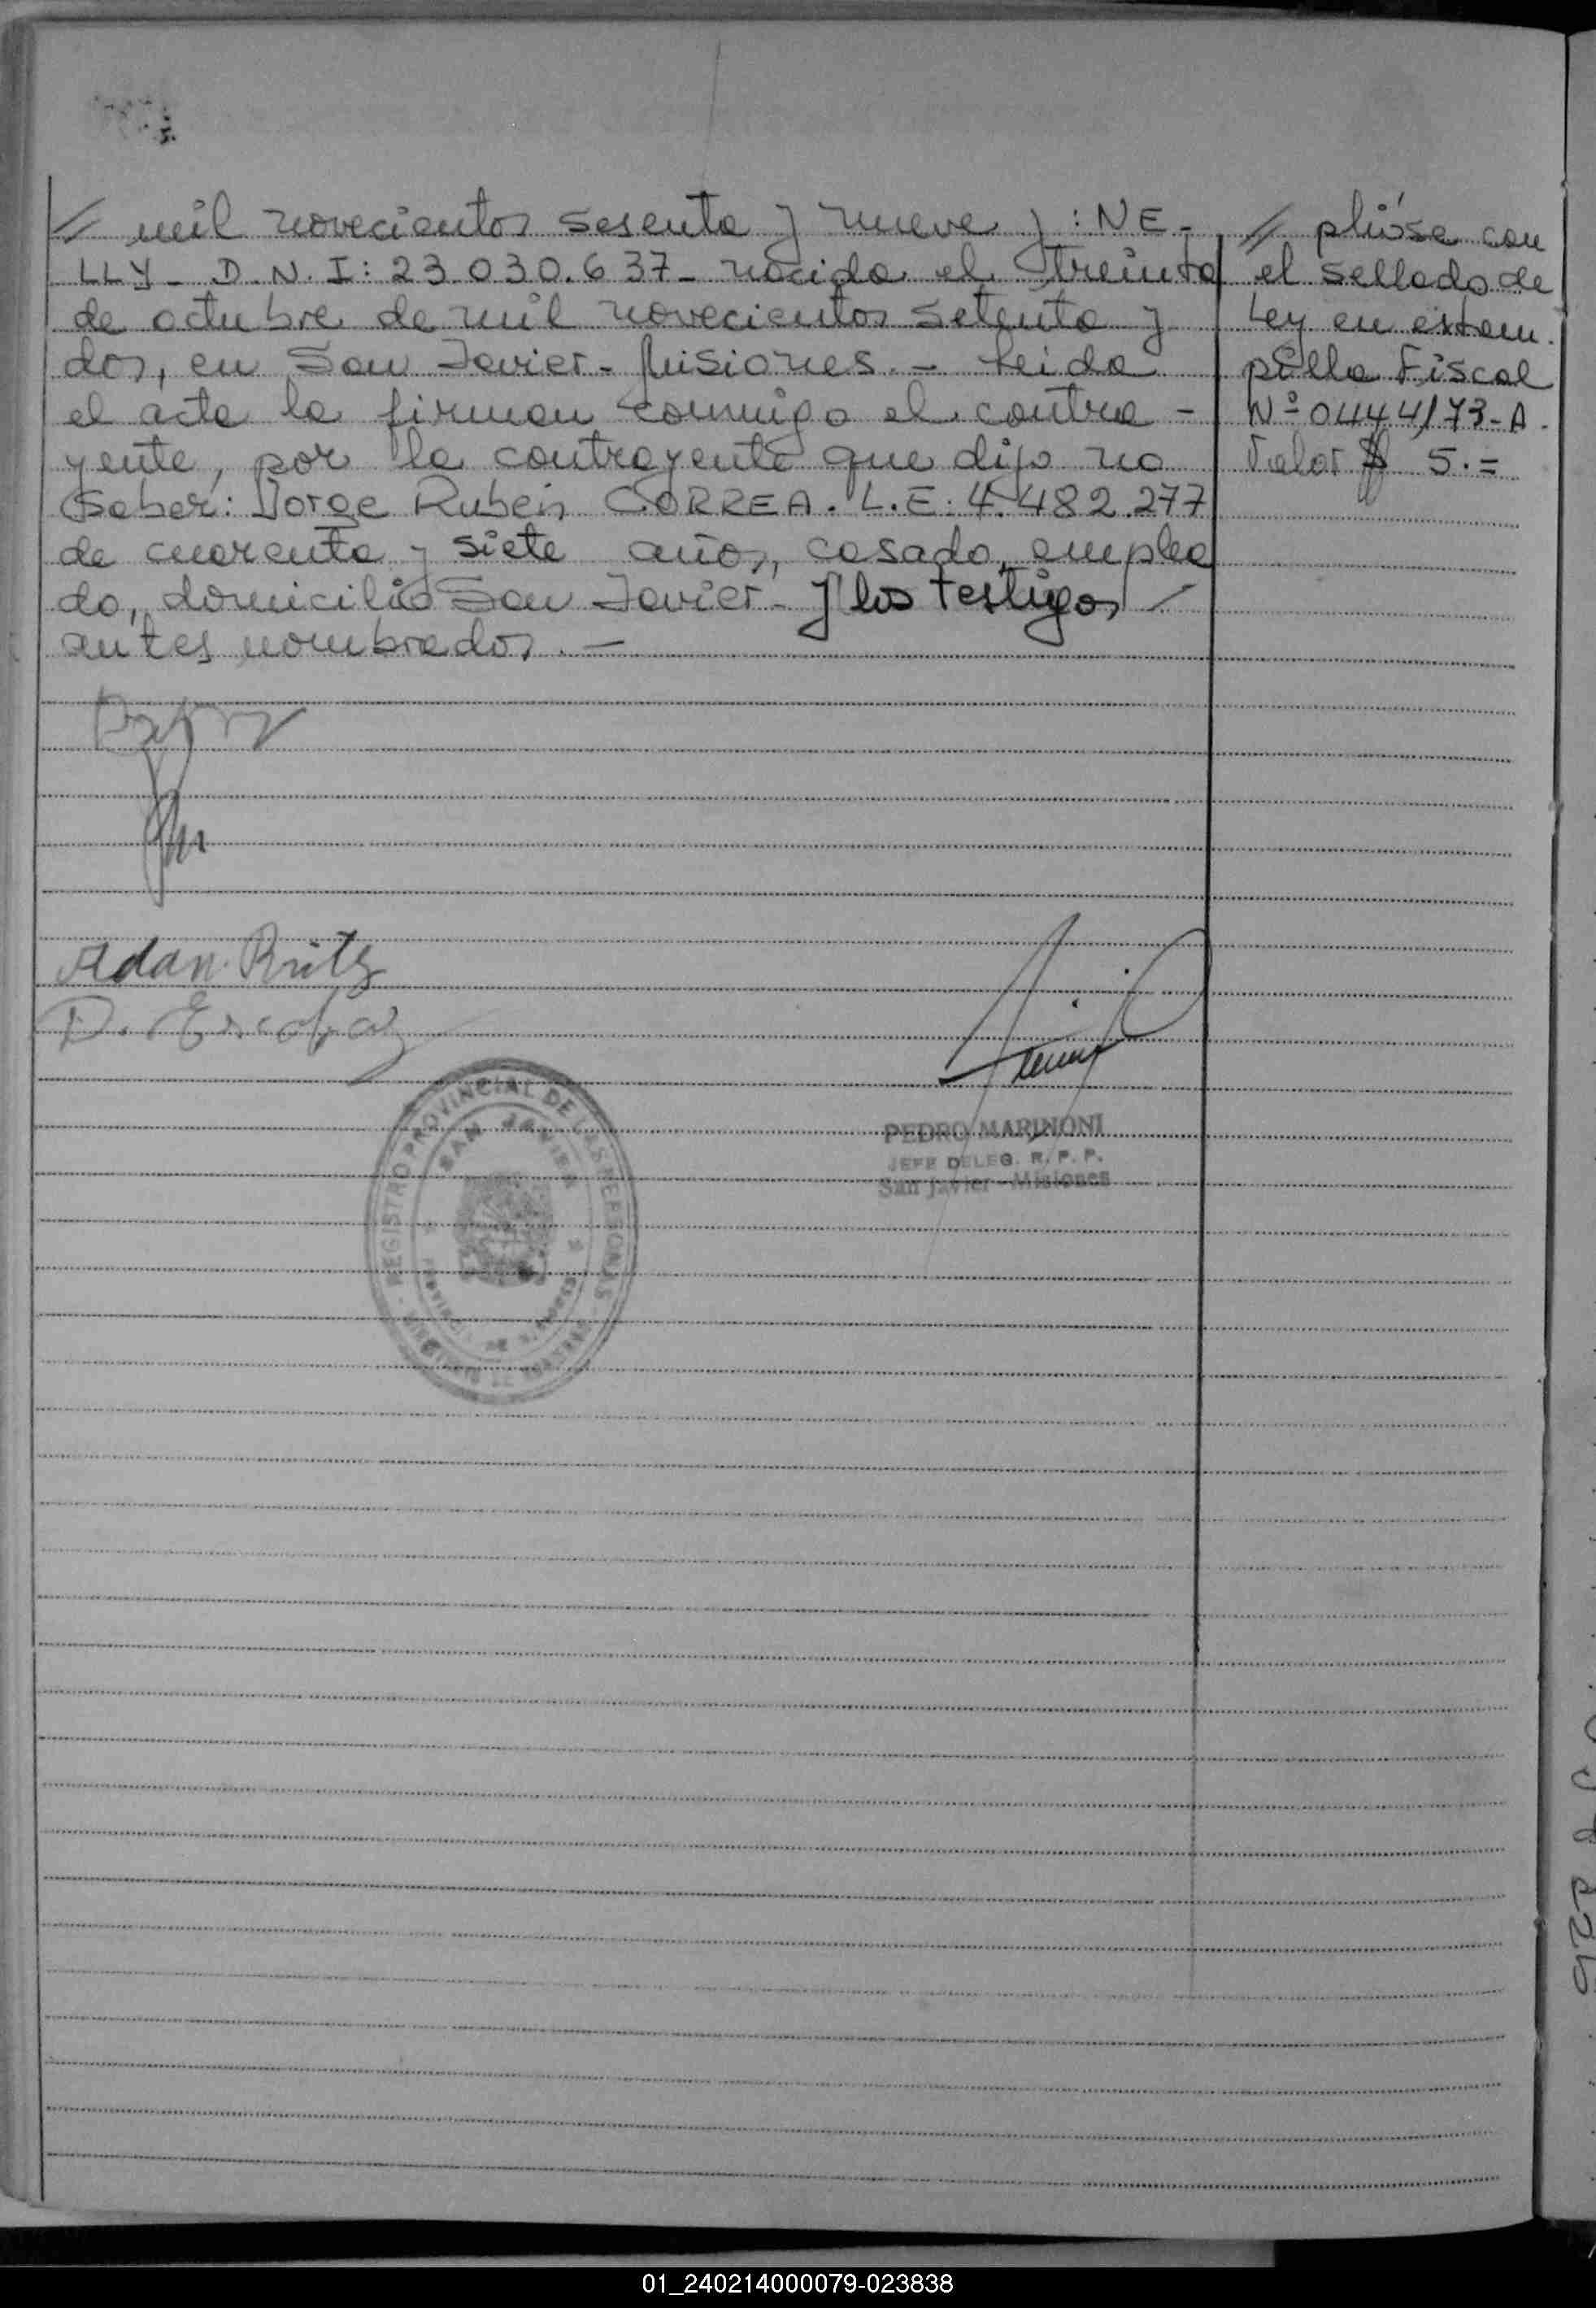 // mil novecientos sesenta y nueve y: NE-
LLY - D.N.I: 23.030.637 - nacida el treinta
de octubre de mil novecientos setenta y
dos, en San Javier - Misiones. - Leida
el acta la firman conmigo el contra-
yente, por la contrayente que dijo no
saber: Jorge Ruben CORREA. L.E: 4.482.277
de cuarenta y siete años, casado, emplea
do, domicilio San Javier - y los testigos
antes nombrados. -
// plióse con
el sellado de
Ley en estam.
pilla Fiscal
Nº 0444173-A.
Valor $ 5.=
Adan Britz
D. Escobar
PEDRO MARINONI
JEFE DELEG. R. P. P.
San Javier - Misiones
REGISTRO PROVINCIAL DE LAS PERSONAS
SAN JAVIER
PROVINCIA DE MISIONES
01_240214000079-023838